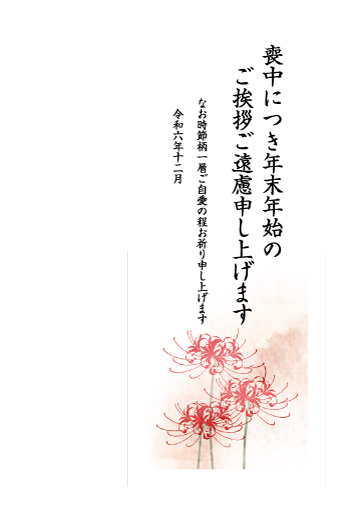 喪中につき年末年始の
ご挨拶ご遠慮申し上げます
なお時節柄一層ご自愛の程お祈り申し上げます
令和六年十二月